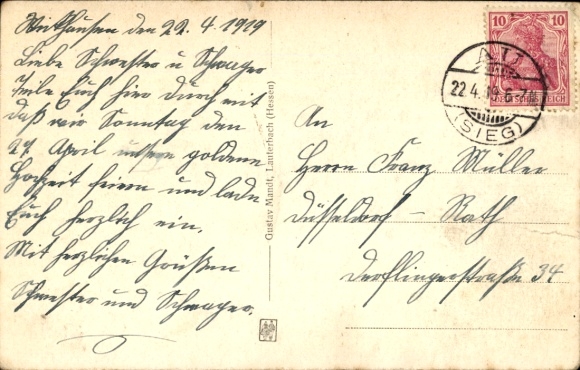 den 22. 4. 1919
Liebe Schwester u Schwager
Teile Euch hier durch mit
daß wir Sonntag den
27 April unsere goldene
Hochzeit feiern und lade
Euch herzlich ein.
Mit herzlichen Grüßen
Schwester und Schwager.
Gustav Mandt, Lauterbach (Hessen)
10 10
DEUTSCHES REICH
AU
22.4.19.6-7
(SIEG)
An
Herrn Franz Müller
Düsseldorf - Rath
Derflingerstraße 34